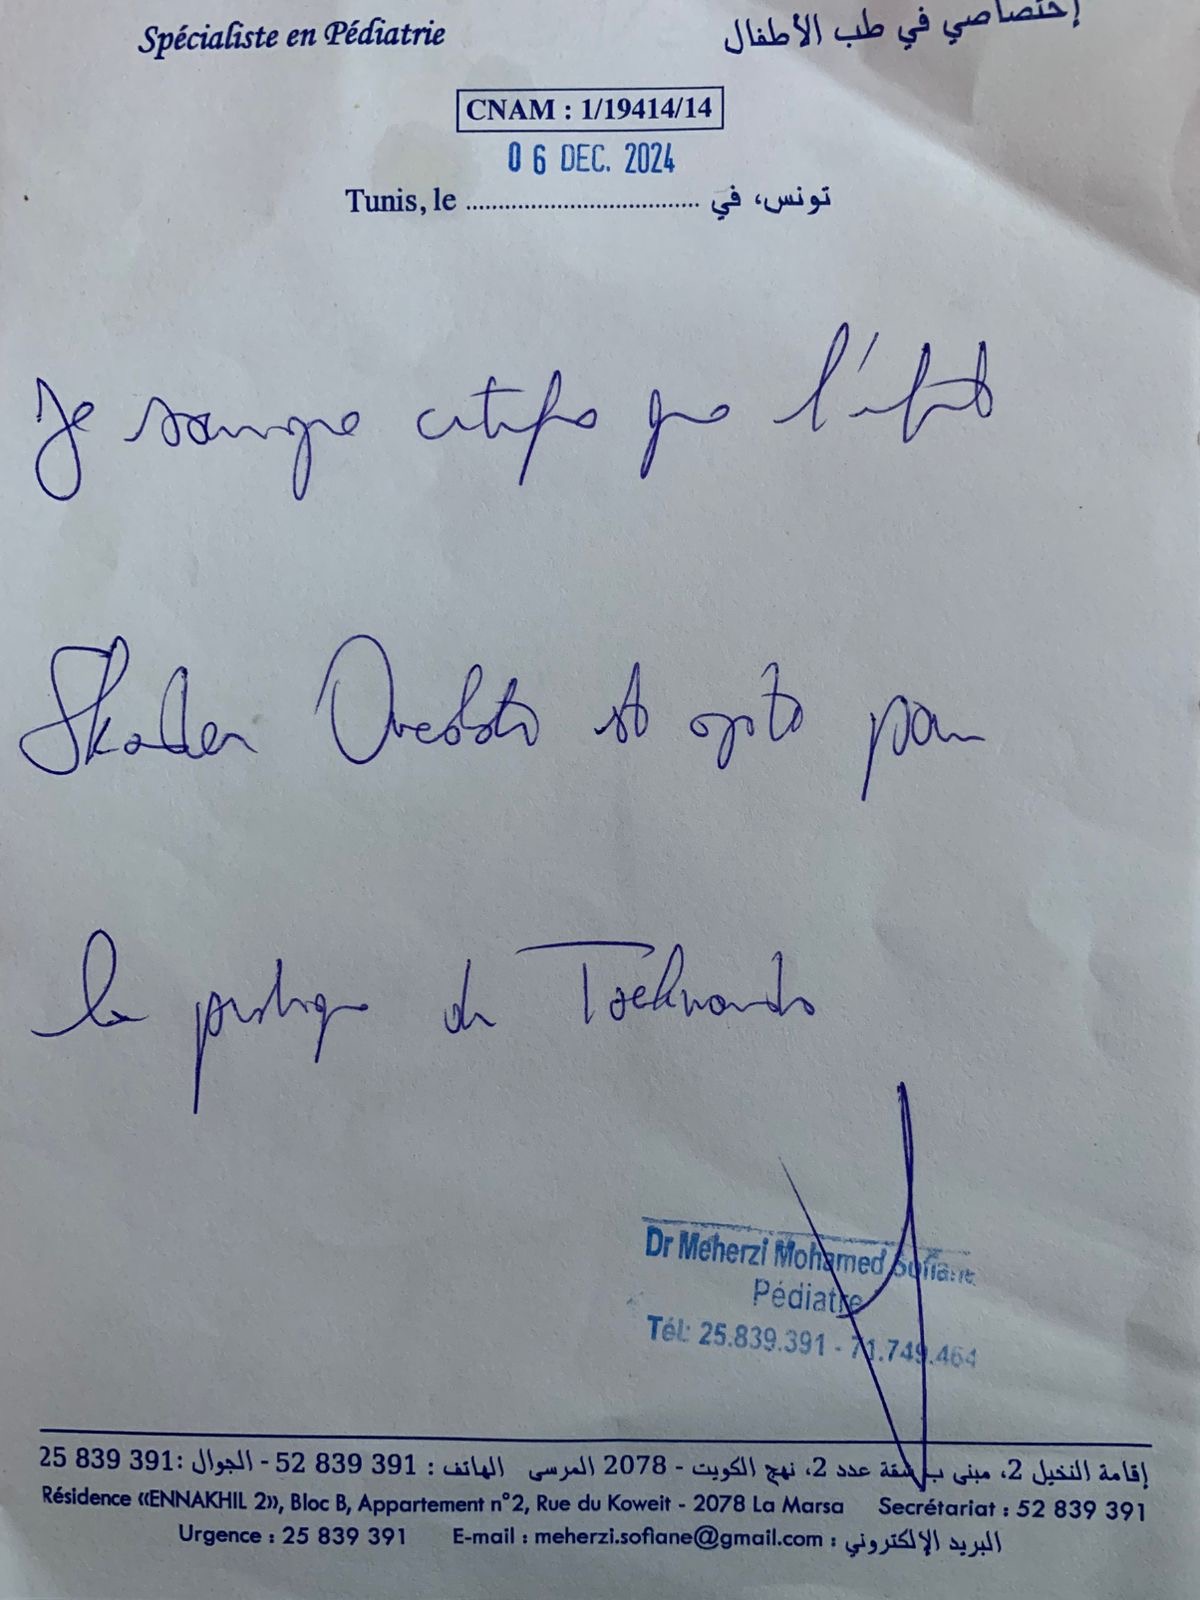 Spécialiste en Pédiatrie
إختصاصي في طب الأطفال
CNAM : 1/19414/14
06 DEC. 2024
Tunis, le ........................ تونس، في
Je soussigné certifie que l'enfant
est apte pour
la pratique du Taekwondo
Dr Meherzi Mohamed Sofiane
Pédiatre
Tél: 25.839.391 - 71.749.464
إقامة النخيل 2، مبنى ب، شقة عدد 2، نهج الكويت - 2078 المرسى الهاتف : 52 839 391 - الجوال : 25 839 391
Résidence «ENNAKHIL 2», Bloc B, Appartement n°2, Rue du Koweit - 2078 La Marsa Secrétariat : 52 839 391
Urgence : 25 839 391 E-mail : meherzi.sofiane@gmail.com : البريد الإلكتروني